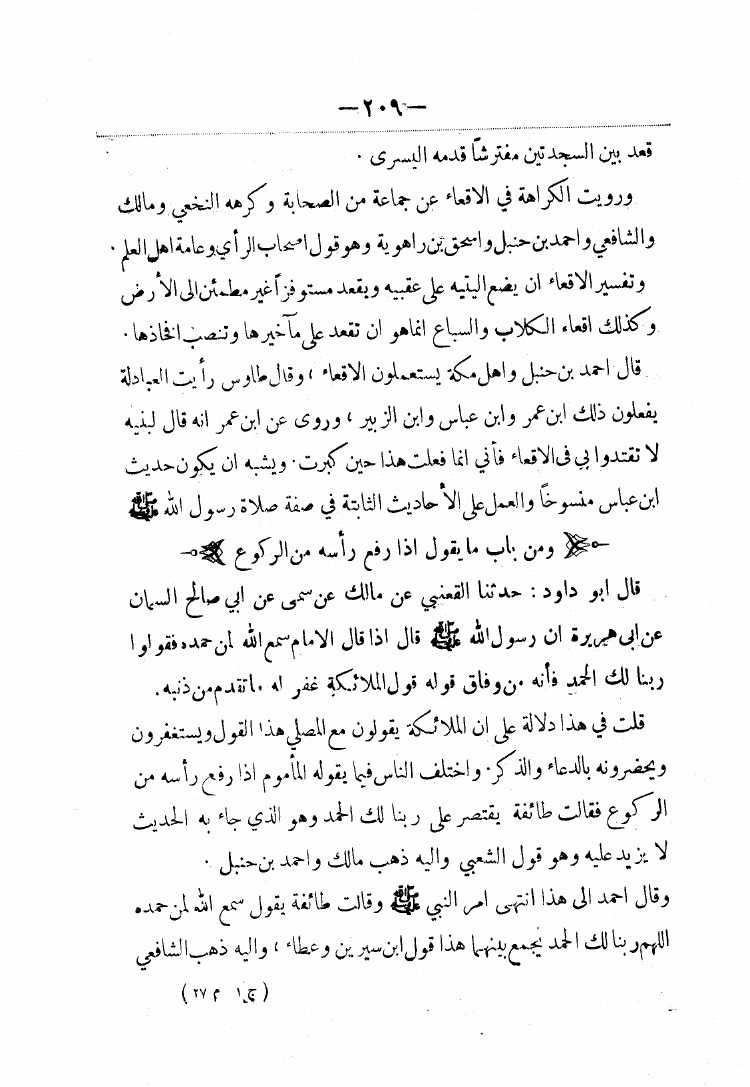 —٢٠٩—
قعد بين السجدتين مفترشاً قدمه اليسرى ٠
ورويت الكراهة في الاقعاء عن جماعة من الصحابة وكرهه النخعي ومالك
والشافعي واحمد بن حنبل واسحق بن راهوية وهو قول اصحاب الرأي وعامة اهل العلم ٠
وتفسير الاقعاء ان يضع اليتيه على عقبيه ويقعد مستوفزاً غير مطمئن الى الأرض
وكذلك اقعاء الكلاب والسباع انما هو ان تقعد على مآخيرها وتنصب افخاذها ٠
قال احمد بن حنبل واهل مكة يستعملون الاقعاء ، وقال طاوس رأيت العبادلة
يفعلون ذلك ابن عمر وابن عباس وابن الزبير ، وروى عن ابن عمر انه قال لبنيه
لا تقتدوا بي في الاقعاء فأني انما فعلت هذا حين كبرت ٠ ويشبه ان يكون حديث
ابن عباس منسوخاً والعمل على الأحاديث الثابتة في صفة صلاة رسول الله ﷺ
ومن باب ما يقول اذا رفع رأسه من الركوع
قال ابو داود : حدثنا القعنبي عن مالك عن سمى عن ابي صالح السمان
عن ابى هريرة ان رسول الله ﷺ قال اذا قال الامام سمع الله لمن حمده فقولوا
ربنا لك الحمد فأنه من وفاق قوله قول الملائكة غفر له ما تقدم من ذنبه .
قلت في هذا دلالة على ان الملائكة يقولون مع المصلي هذا القول ويستغفرون
ويحضرونه بالدعاء والذكر ٠ واختلف الناس فيما يقوله المأموم اذا رفع رأسه من
الركوع فقالت طائفة يقتصر على ربنا لك الحمد وهو الذي جاء به الحديث
لا يزيد عليه وهو قول الشعبي واليه ذهب مالك واحمد بن حنبل ٠
وقال احمد الى هذا انتهى امر النبي ﷺ وقالت طائفة يقول سمع الله لمن حمده
اللهم ربنا لك الحمد يجمع بينهما هذا قول ابن سيرين وعطاء ، واليه ذهب الشافعي
( ج ١ م ٢٧ )